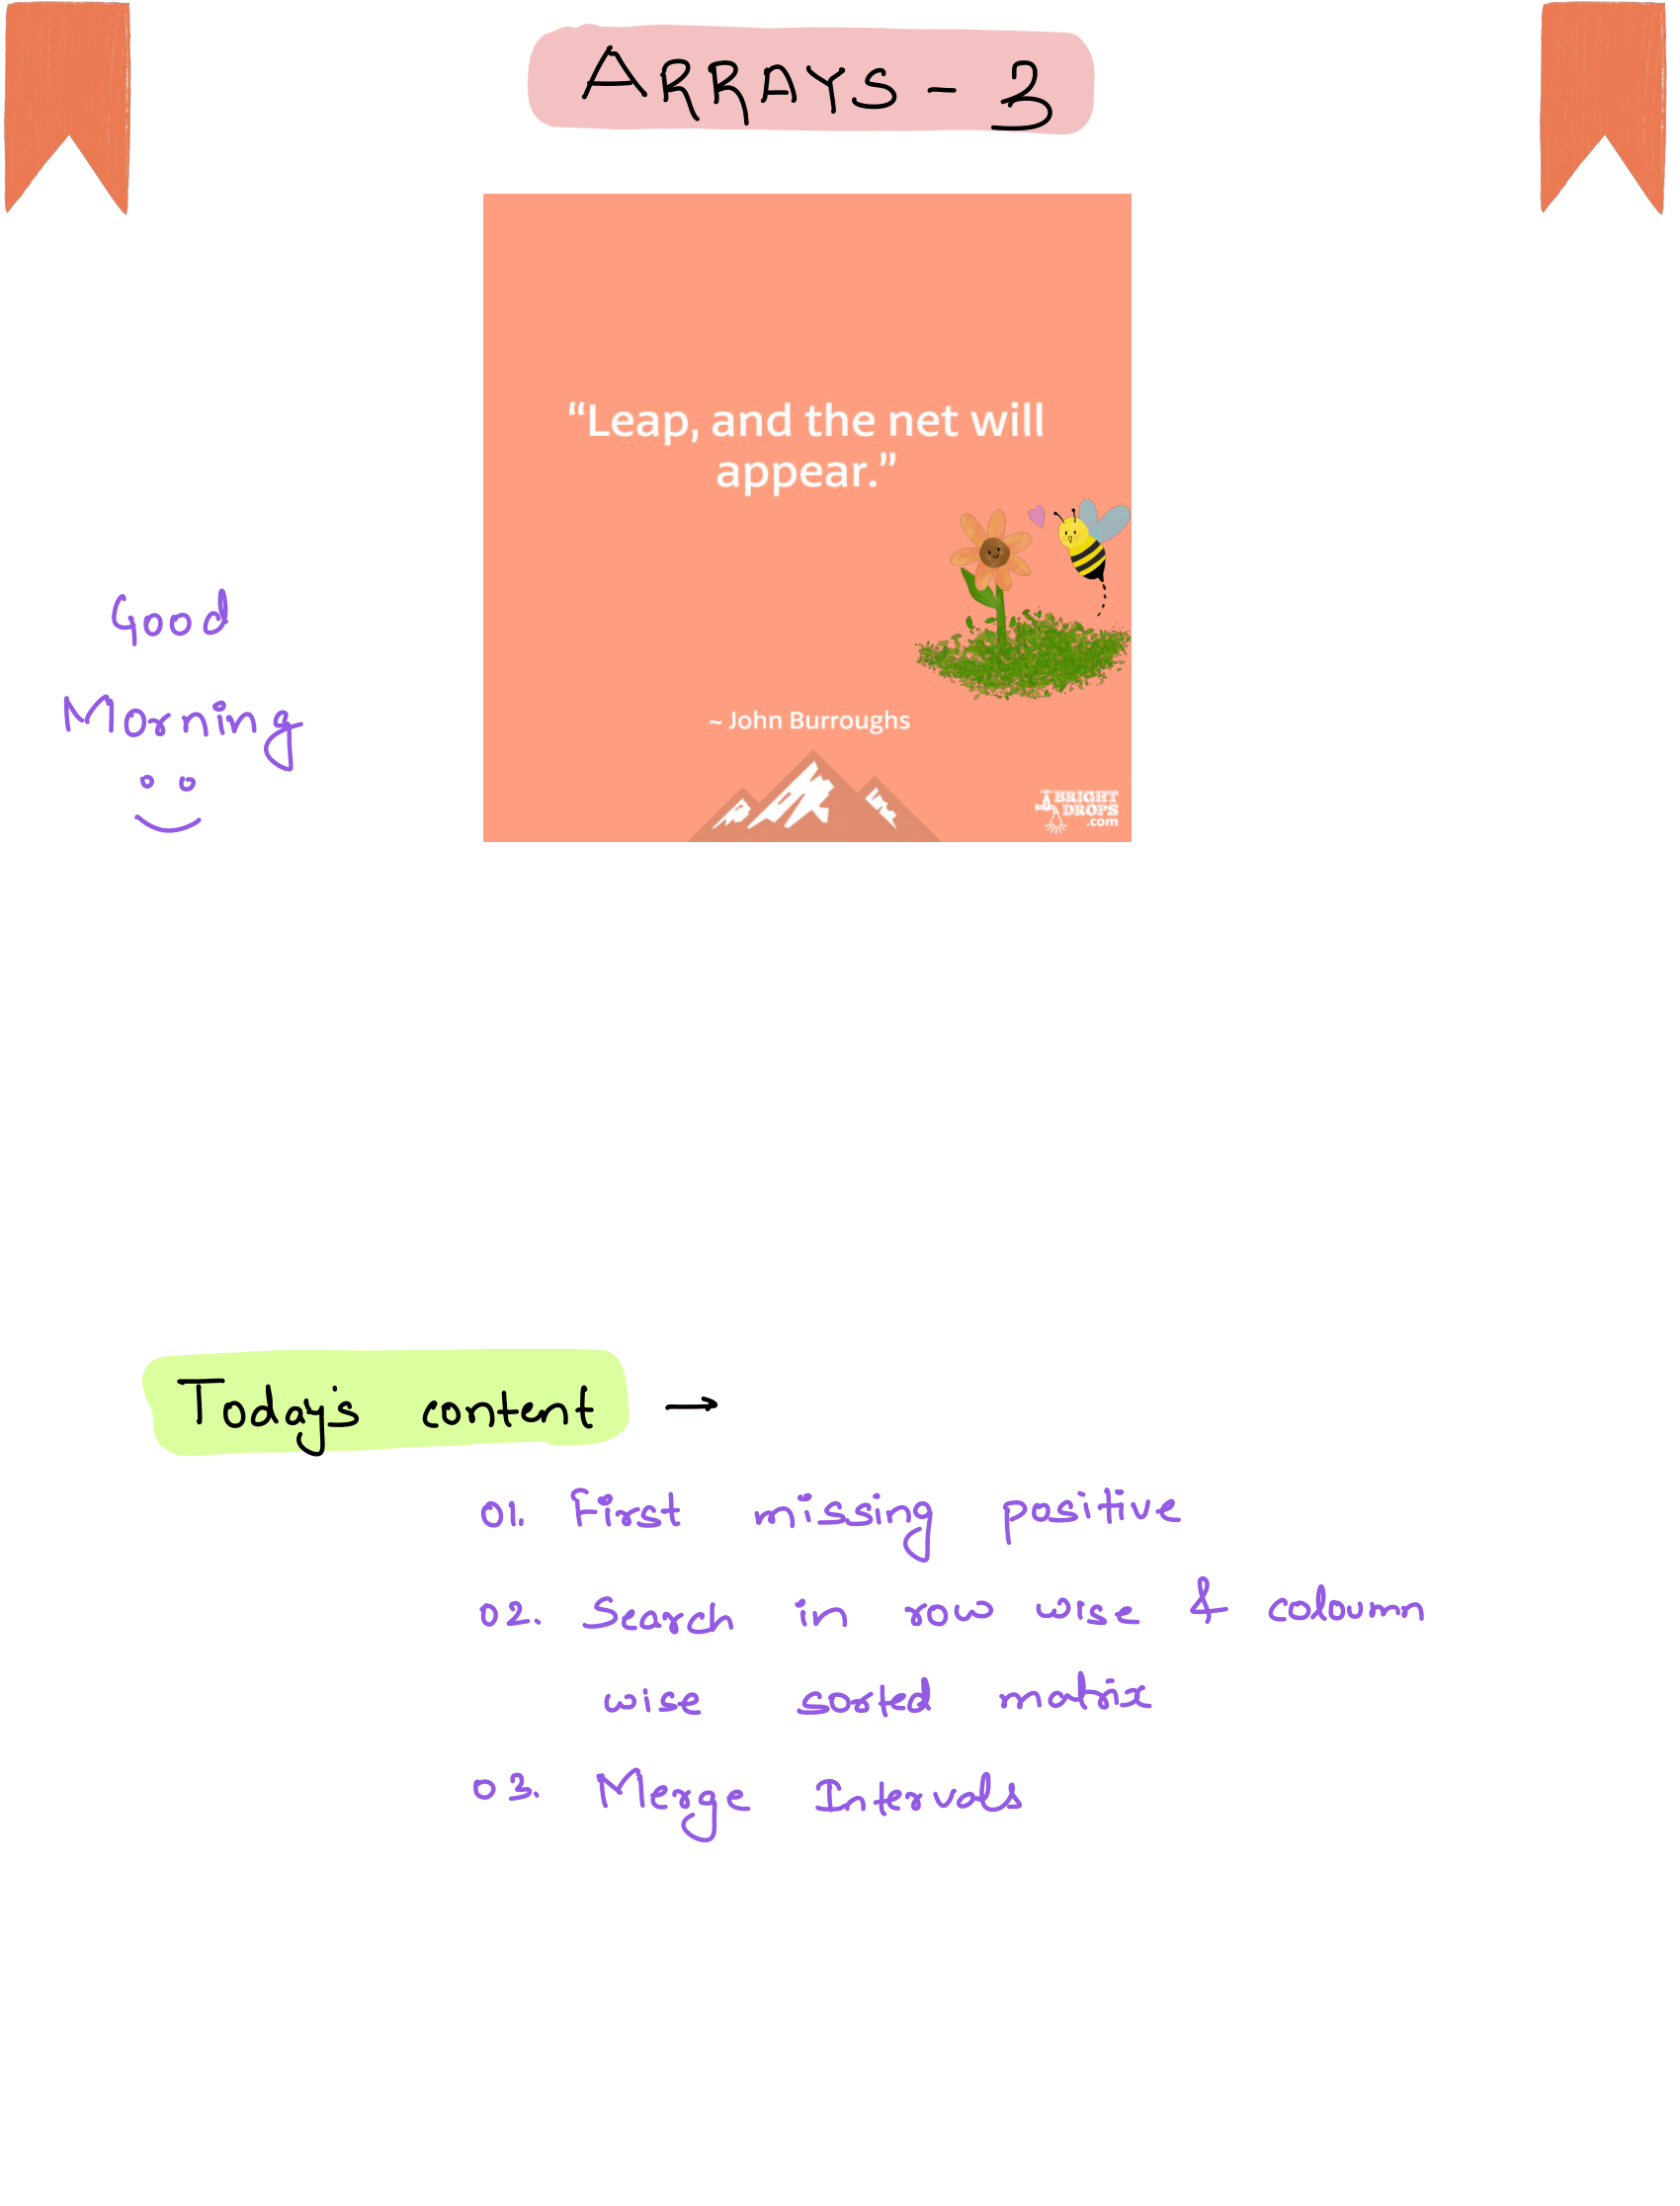 ARRAYS - 3
“Leap, and the net will
appear.”
Good
Morning
~ John Burroughs
BRIGHT
DROPS
.com
Today's content →
01. First missing positive
02. Search in row wise & coloumn
wise sorted matrix
03. Merge Intervals